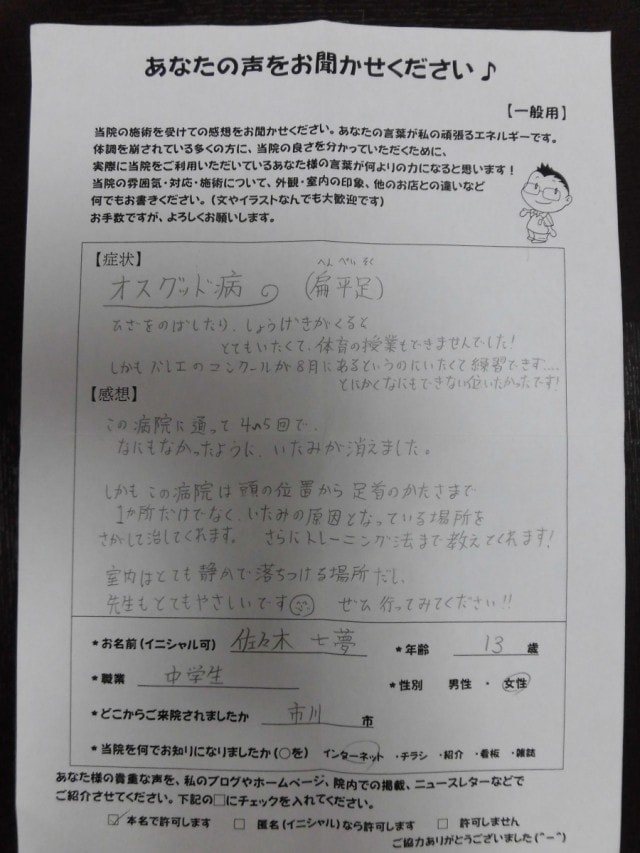 あなたの声をお聞かせください♪
【一般用】
当院の施術を受けての感想をお聞かせください。あなたの言葉が私の頑張るエネルギーです。
体調を崩されている多くの方に、当院の良さを分かっていただくために、
実際に当院をご利用いただいているあなた様の言葉が何よりの力になると思います！
当院の雰囲気・対応・施術について、外観・室内の印象、他のお店との違いなど
何でもお書きください。(文やイラストなんでも大歓迎です)
お手数ですが、よろしくお願いします。
【症状】
へんぺいそく
オスグッド病の (扁平足)
ひざをのばしたり、しょうげきがくると
とてもいたくて、体育の授業もできませんでした！
しかもバレエのコンクールが8月にあるというのにいたくて練習できず....
とにかくなにもできない位いたかったです！
【感想】
この病院に通って4〜5回で、
なにもなかったように、いたみが消えました。
しかもこの病院は頭の位置から足首のかたさまで
1か所だけでなく、いたみの原因となっている場所を
さがして治してくれます。 さらにトレーニング法まで教えてくれます！
室内はとても静かで落ちつける場所だし、
先生もとてもやさしいです ぜひ行ってみてください!!
*お名前(イニシャル可) 佐々木 七夢 *年齢 13 歳
*職業 中学生 *性別 男性 ・ 女性
*どこからご来院されましたか 市川 市
*当院を何でお知りになりましたか(○を) インターネット ・チラシ ・紹介 ・看板 ・雑誌
あなた様の貴重な声を、私のブログやホームページ、院内での掲載、ニュースレターなどで
ご紹介させてください。下記の□にチェックを入れてください。
☑ 本名で許可します □ 匿名(イニシャル)なら許可します □ 許可しません
ご協力ありがとうございました(^-^)